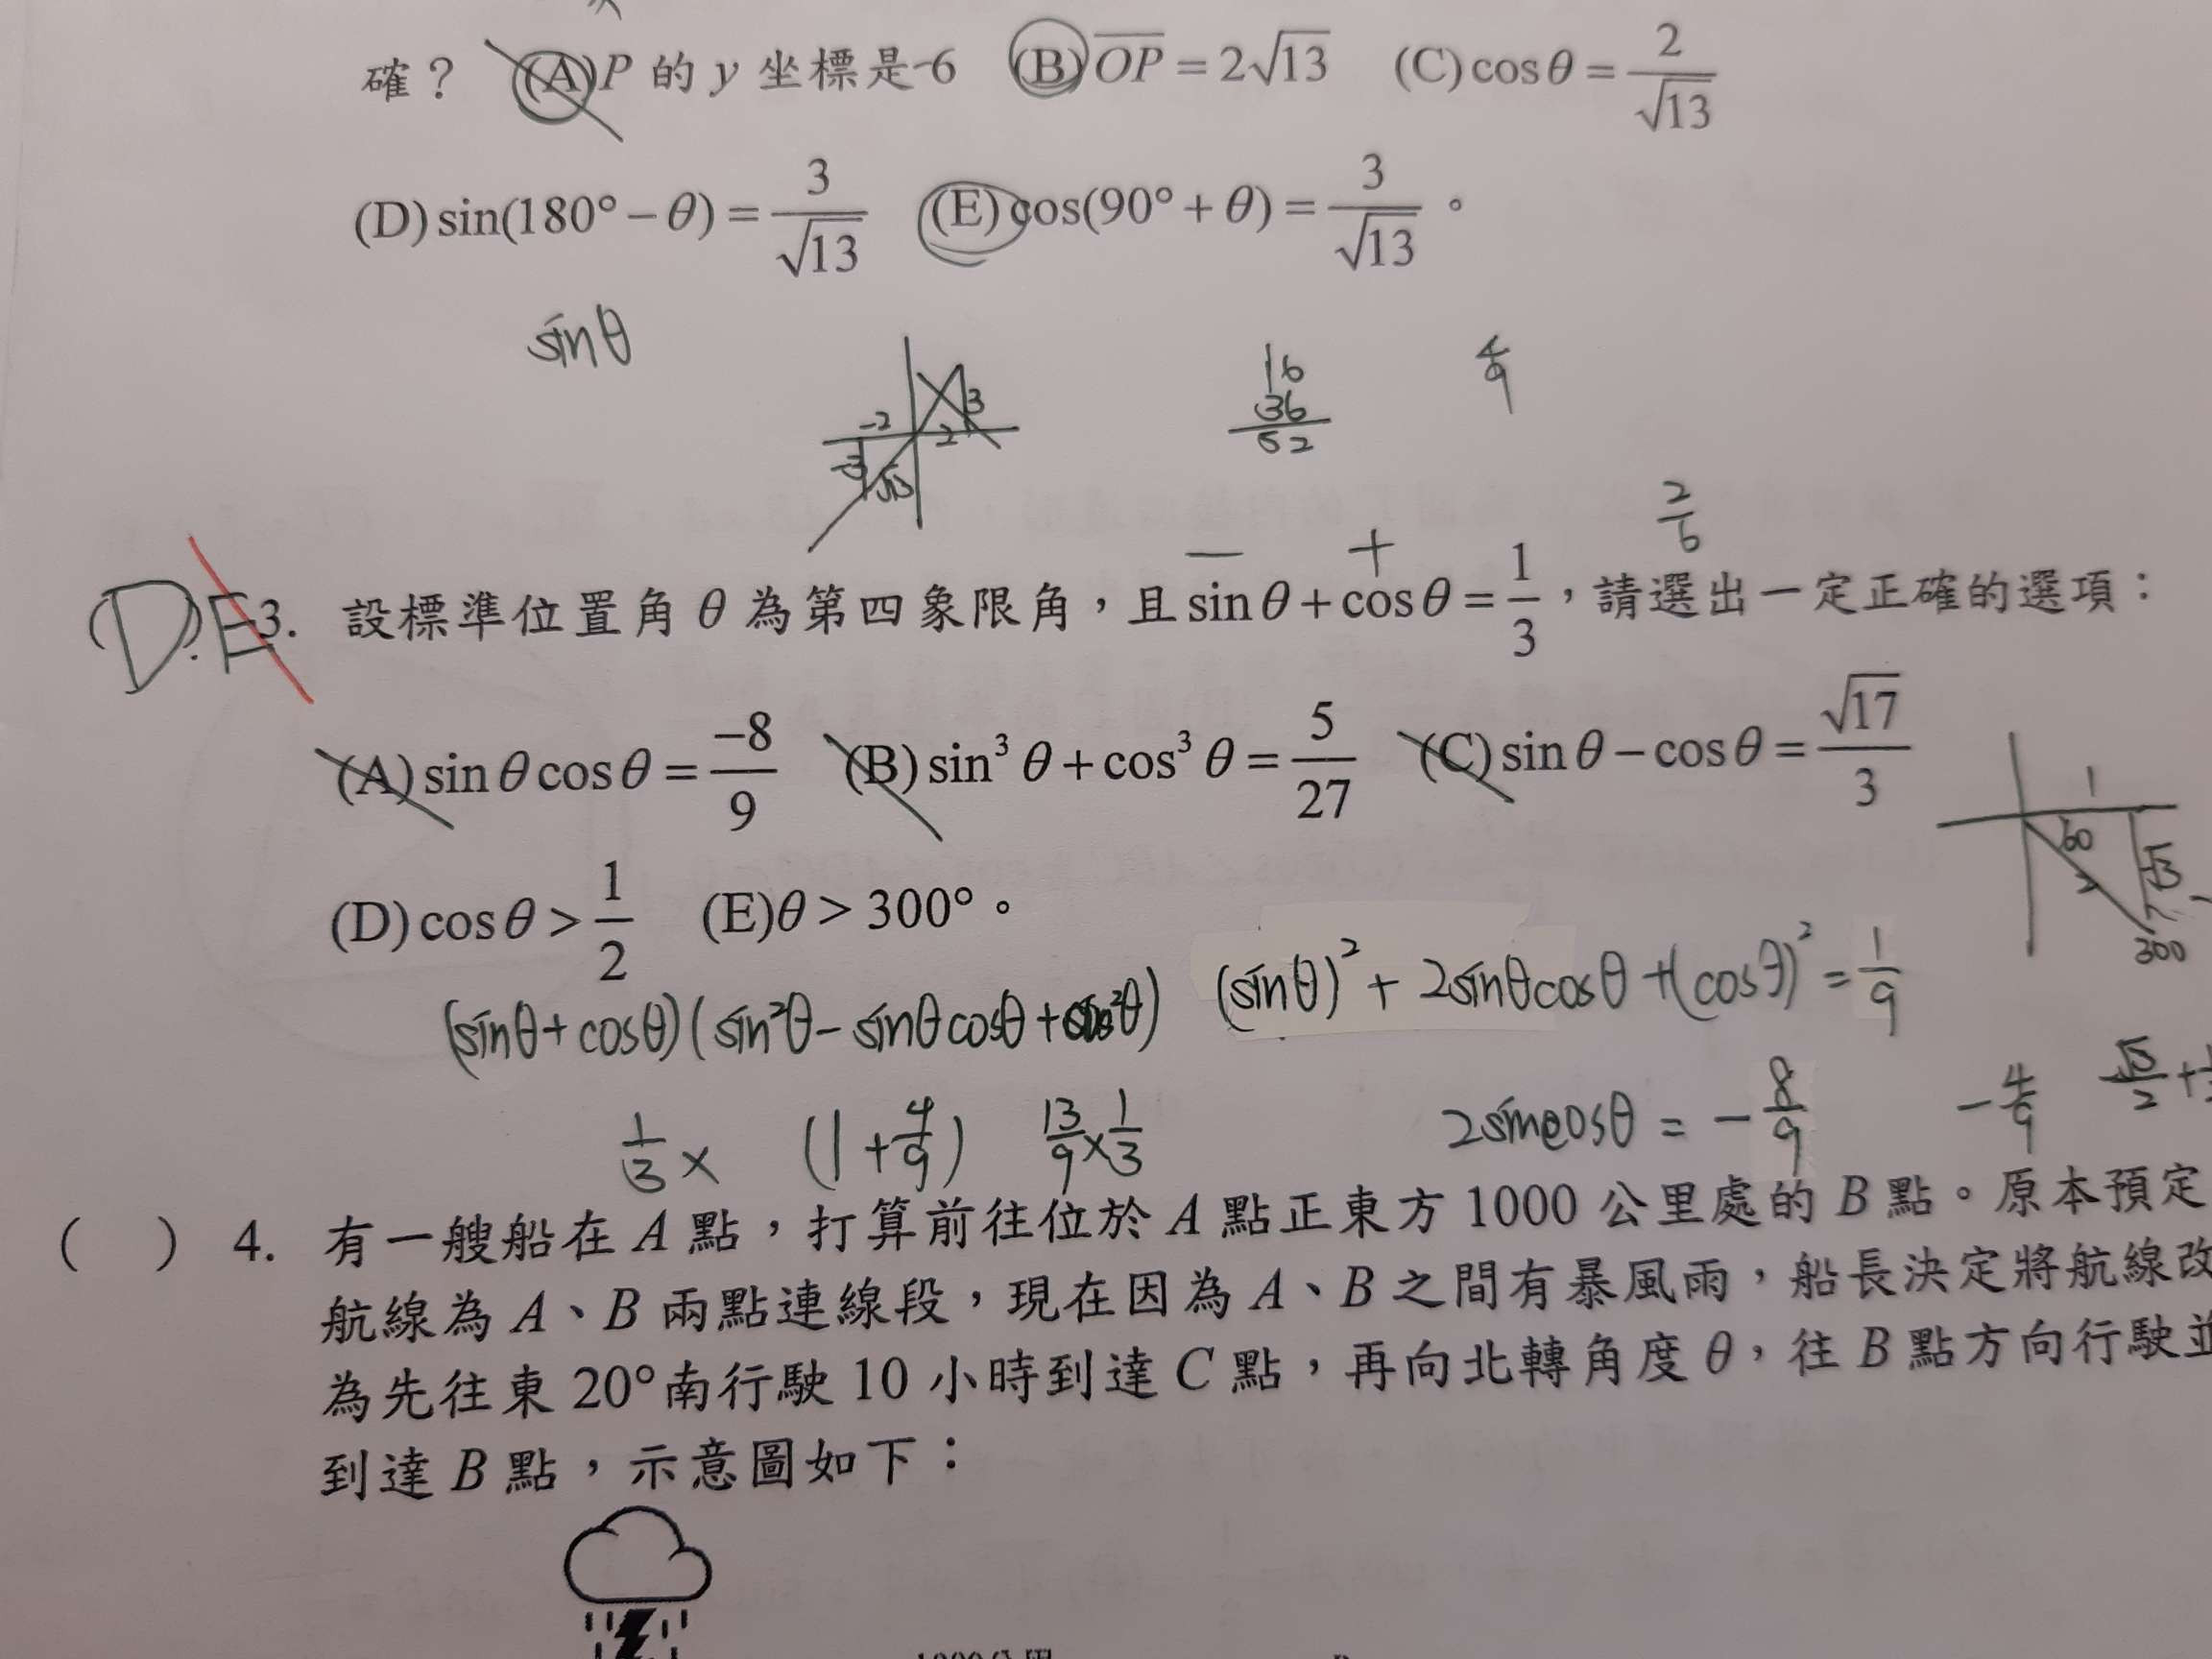 確？ (A)P 的 y 坐標是-6 (B) \overline{OP} = 2√13 (C) cosθ = 2/√13
(D) sin(180° − θ) = 3/√13 (E) cos(90° + θ) = 3/√13 。
sinθ
-2 3 2 -3 √13
16
36
52
4/9
2/6
− +
(D.E 3. 設標準位置角 θ 為第四象限角，且 sinθ + cosθ = 1/3，請選出一定正確的選項：
(A) sinθcosθ = -8/9 (B) sin³θ + cos³θ = 5/27 (C) sinθ − cosθ = √17/3
1
60
2 √3
300
(D) cosθ > 1/2 (E)θ > 300° 。
(sinθ + cosθ)(sin²θ − sinθcosθ + cos²θ) (sinθ)² + 2sinθcosθ + (cosθ)² = 1/9
1/3 × (1 + 4/9) 13/9 × 1/3 2sinθcosθ = −8/9 −4/9 √3/2 +
( ) 4. 有一艘船在 A 點，打算前往位於 A 點正東方 1000 公里處的 B 點。原本預定
航線為 A、B 兩點連線段，現在因為 A、B 之間有暴風雨，船長決定將航線改
為先往東 20° 南行駛 10 小時到達 C 點，再向北轉角度 θ，往 B 點方向行駛並
到達 B 點，示意圖如下：